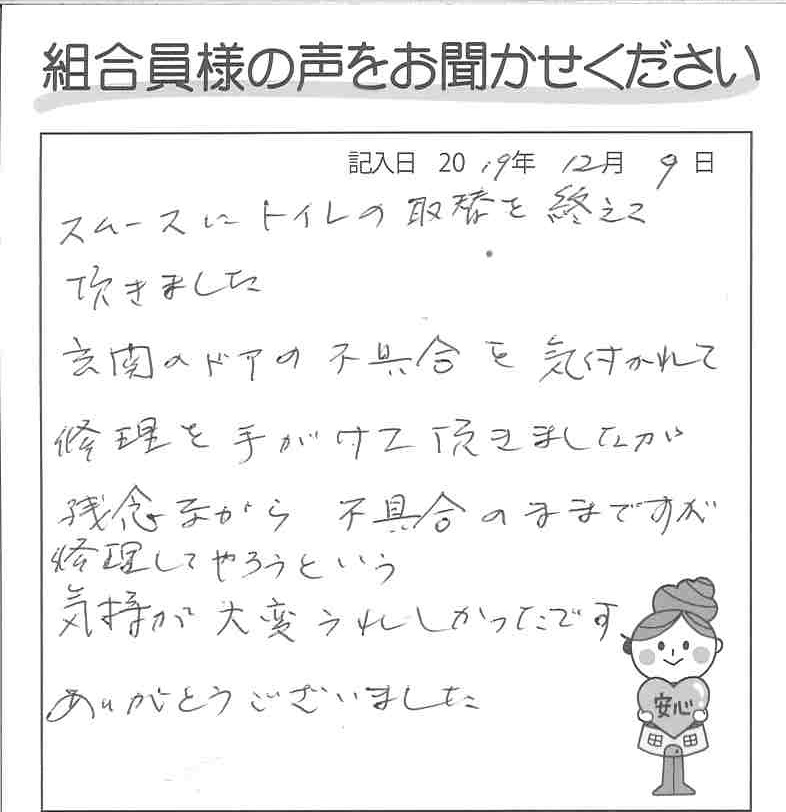 組合員様の声をお聞かせください
記入日 2019年 12月 9日
スムースにトイレの取替を終えて
頂きました
玄関のドアの不具合を気付かれて
修理を手がけて頂きましたが
残念ながら不具合のままですが
修理してやろうという
気持が大変うれしかったです
ありがとうございました
安心